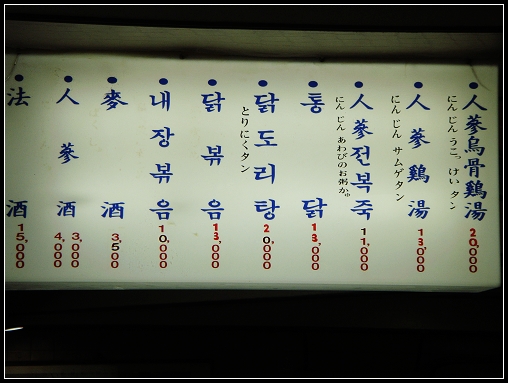 人蔘烏骨鷄湯
にんじんうこっけいタン
20,000
人参鷄湯
にんじんサムゲタン
13,000
人蔘전복죽
にんじんあわびのお粥か。
11,000
통닭
13,000
닭도리탕
とりにくタン
20,000
닭볶음
13,000
내장볶음
10,000
麥酒
3,500
人蔘酒
3,000
4,000
法酒
15,000